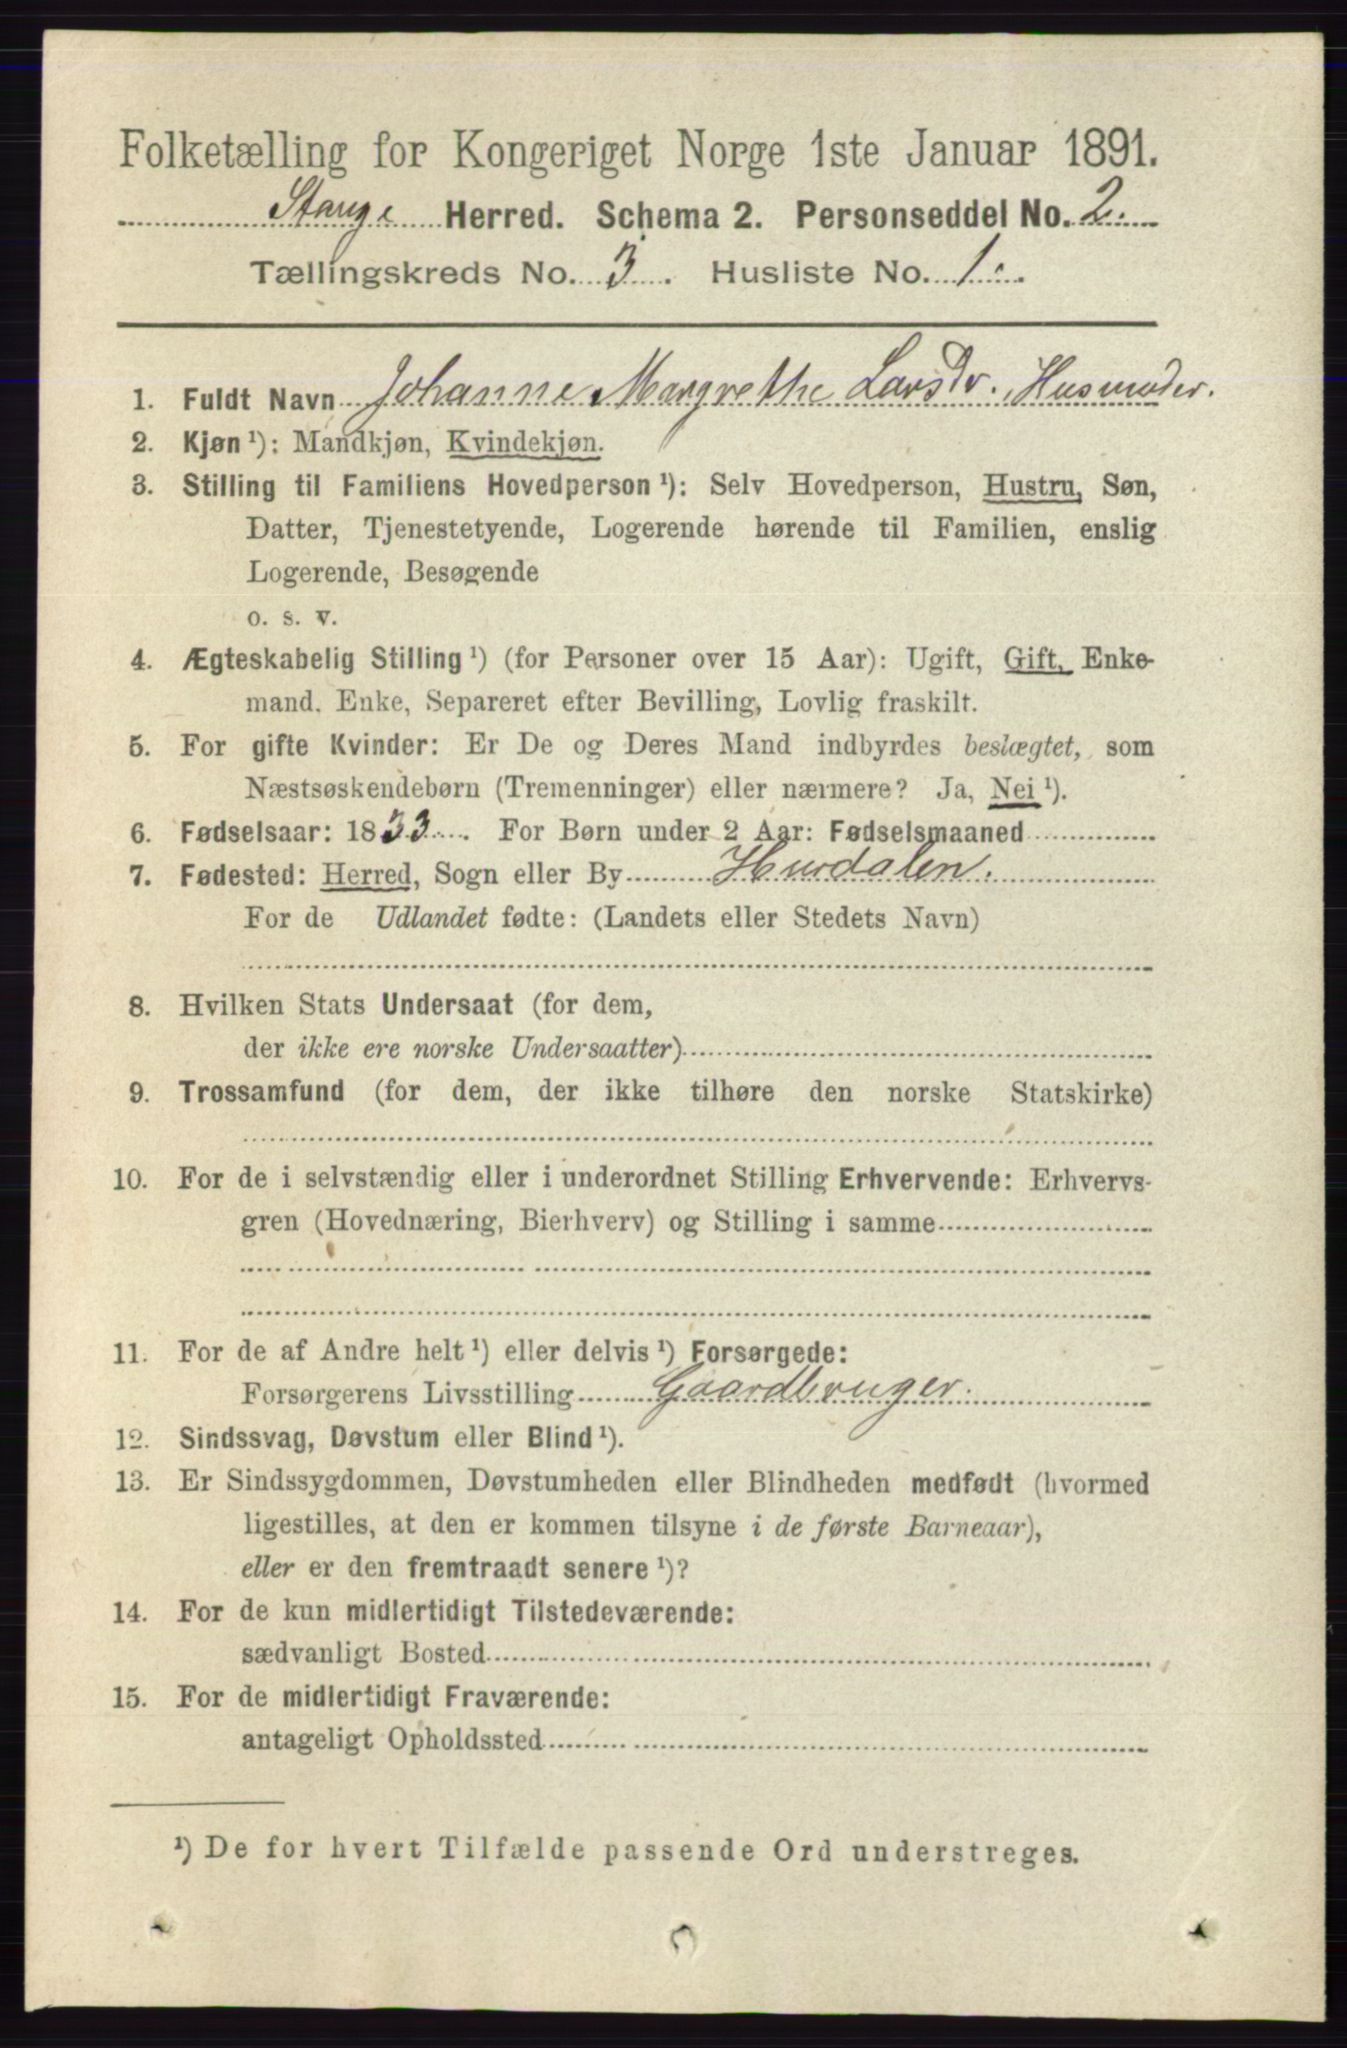 Folketælling for Kongeriget Norge 1ste Januar 1891.
Stange Herred. Schema 2. Personseddel No. 2.
Tællingskreds No. 3. Husliste No. 1.
1. Fuldt Navn Johanne Margrethe Larsdr. Husmoder.
2. Kjøn ¹): Mandkjøn, Kvindekjøn.
3. Stilling til Familiens Hovedperson ¹): Selv Hovedperson, Hustru, Søn,
Datter, Tjenestetyende, Logerende hørende til Familien, enslig
Logerende, Besøgende
o. s. v.
4. Ægteskabelig Stilling ¹) (for Personer over 15 Aar): Ugift, Gift, Enke-
mand, Enke, Separeret efter Bevilling, Lovlig fraskilt.
5. For gifte Kvinder: Er De og Deres Mand indbyrdes beslægtet, som
Næstsøskendebørn (Tremenninger) eller nærmere? Ja, Nei ¹).
6. Fødselsaar: 1833. For Børn under 2 Aar: Fødselsmaaned
7. Fødested: Herred, Sogn eller By Hurdalen.
For de Udlandet fødte: (Landets eller Stedets Navn)
8. Hvilken Stats Undersaat (for dem,
der ikke ere norske Undersaatter)
9. Trossamfund (for dem, der ikke tilhøre den norske Statskirke)
10. For de i selvstændig eller i underordnet Stilling Erhvervende: Erhvervs-
gren (Hovednæring, Bierhverv) og Stilling i samme
11. For de af Andre helt ¹) eller delvis ¹) Forsørgede:
Forsørgerens Livsstilling Gaardbruger.
12. Sindssvag, Døvstum eller Blind ¹).
13. Er Sindssygdommen, Døvstumheden eller Blindheden medfødt (hvormed
ligestilles, at den er kommen tilsyne i de første Barneaar),
eller er den fremtraadt senere ¹)?
14. For de kun midlertidigt Tilstedeværende:
sædvanligt Bosted
15. For de midlertidigt Fraværende:
antageligt Opholdssted
¹) De for hvert Tilfælde passende Ord understreges.